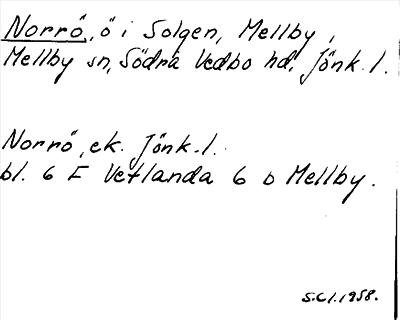 Norrö, ö i Solgen, Mellby,
Mellby sn, Södra Vedbo hd, Jönk. l.
Norrö, ek. Jönk. l.
bl. 6 F Vetlanda 6 b Mellby.
S.Cl. 1958.